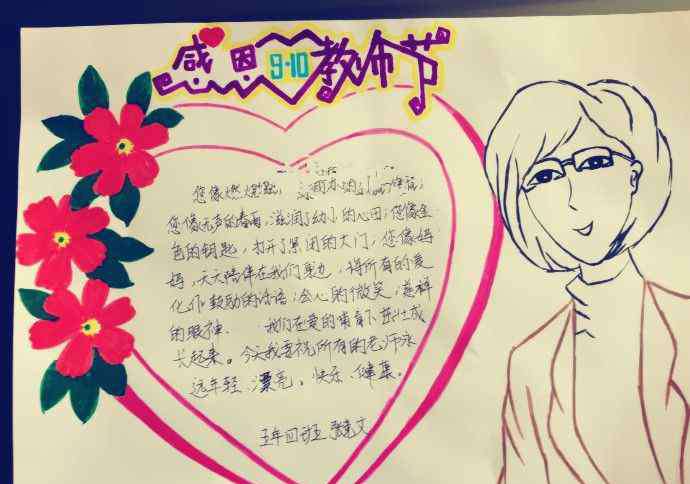 感恩 9·10 教师节
您像燃烛,
您像无声的春雨,滋润了幼小的心田;您像金
色的钥匙,打开了黑闭的大门;您像妈
妈,天天陪伴在我们身边,将所有的爱
化作鼓励的话语;会心的微笑,慈祥
的眼神. 我们在爱的哺育下茁壮成
长起来。今天我要祝所有的老师永
远年轻、漂亮。快乐、健康。
五年四班 文